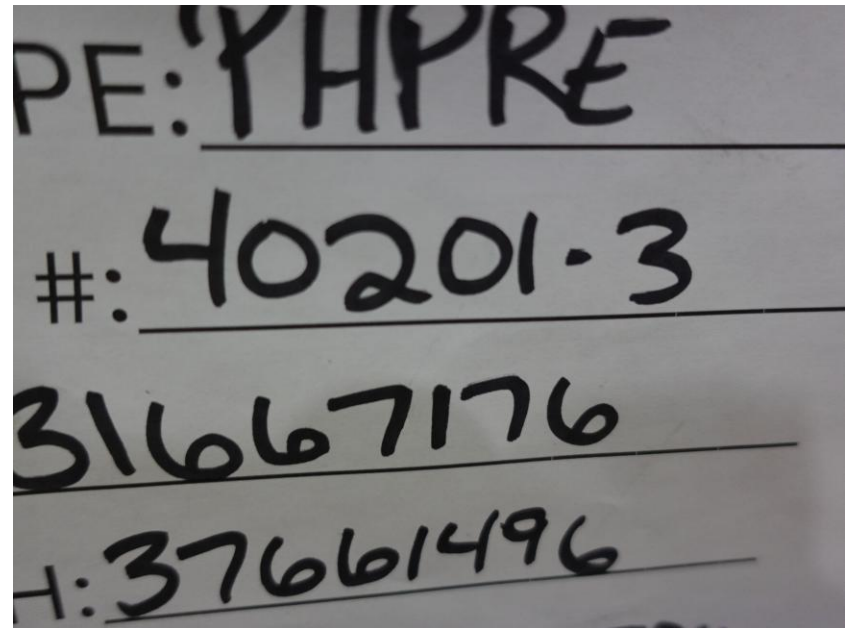 PE: PHPRE
#: 40201-3
31667176
H: 37661496